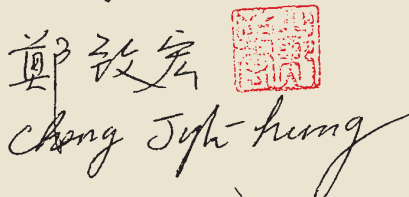 鄭致宏
Cheng Jyh-hung